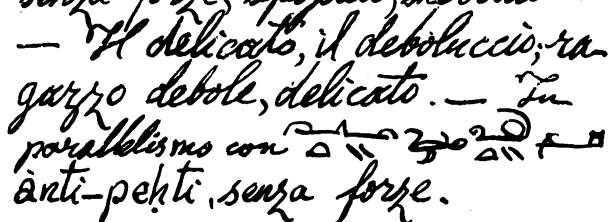 senza forze,
— Il delicato, il deboluccio; ra-
gazzo debole, delicato. — In
parallelismo con
ànti-peḥti, senza forze.